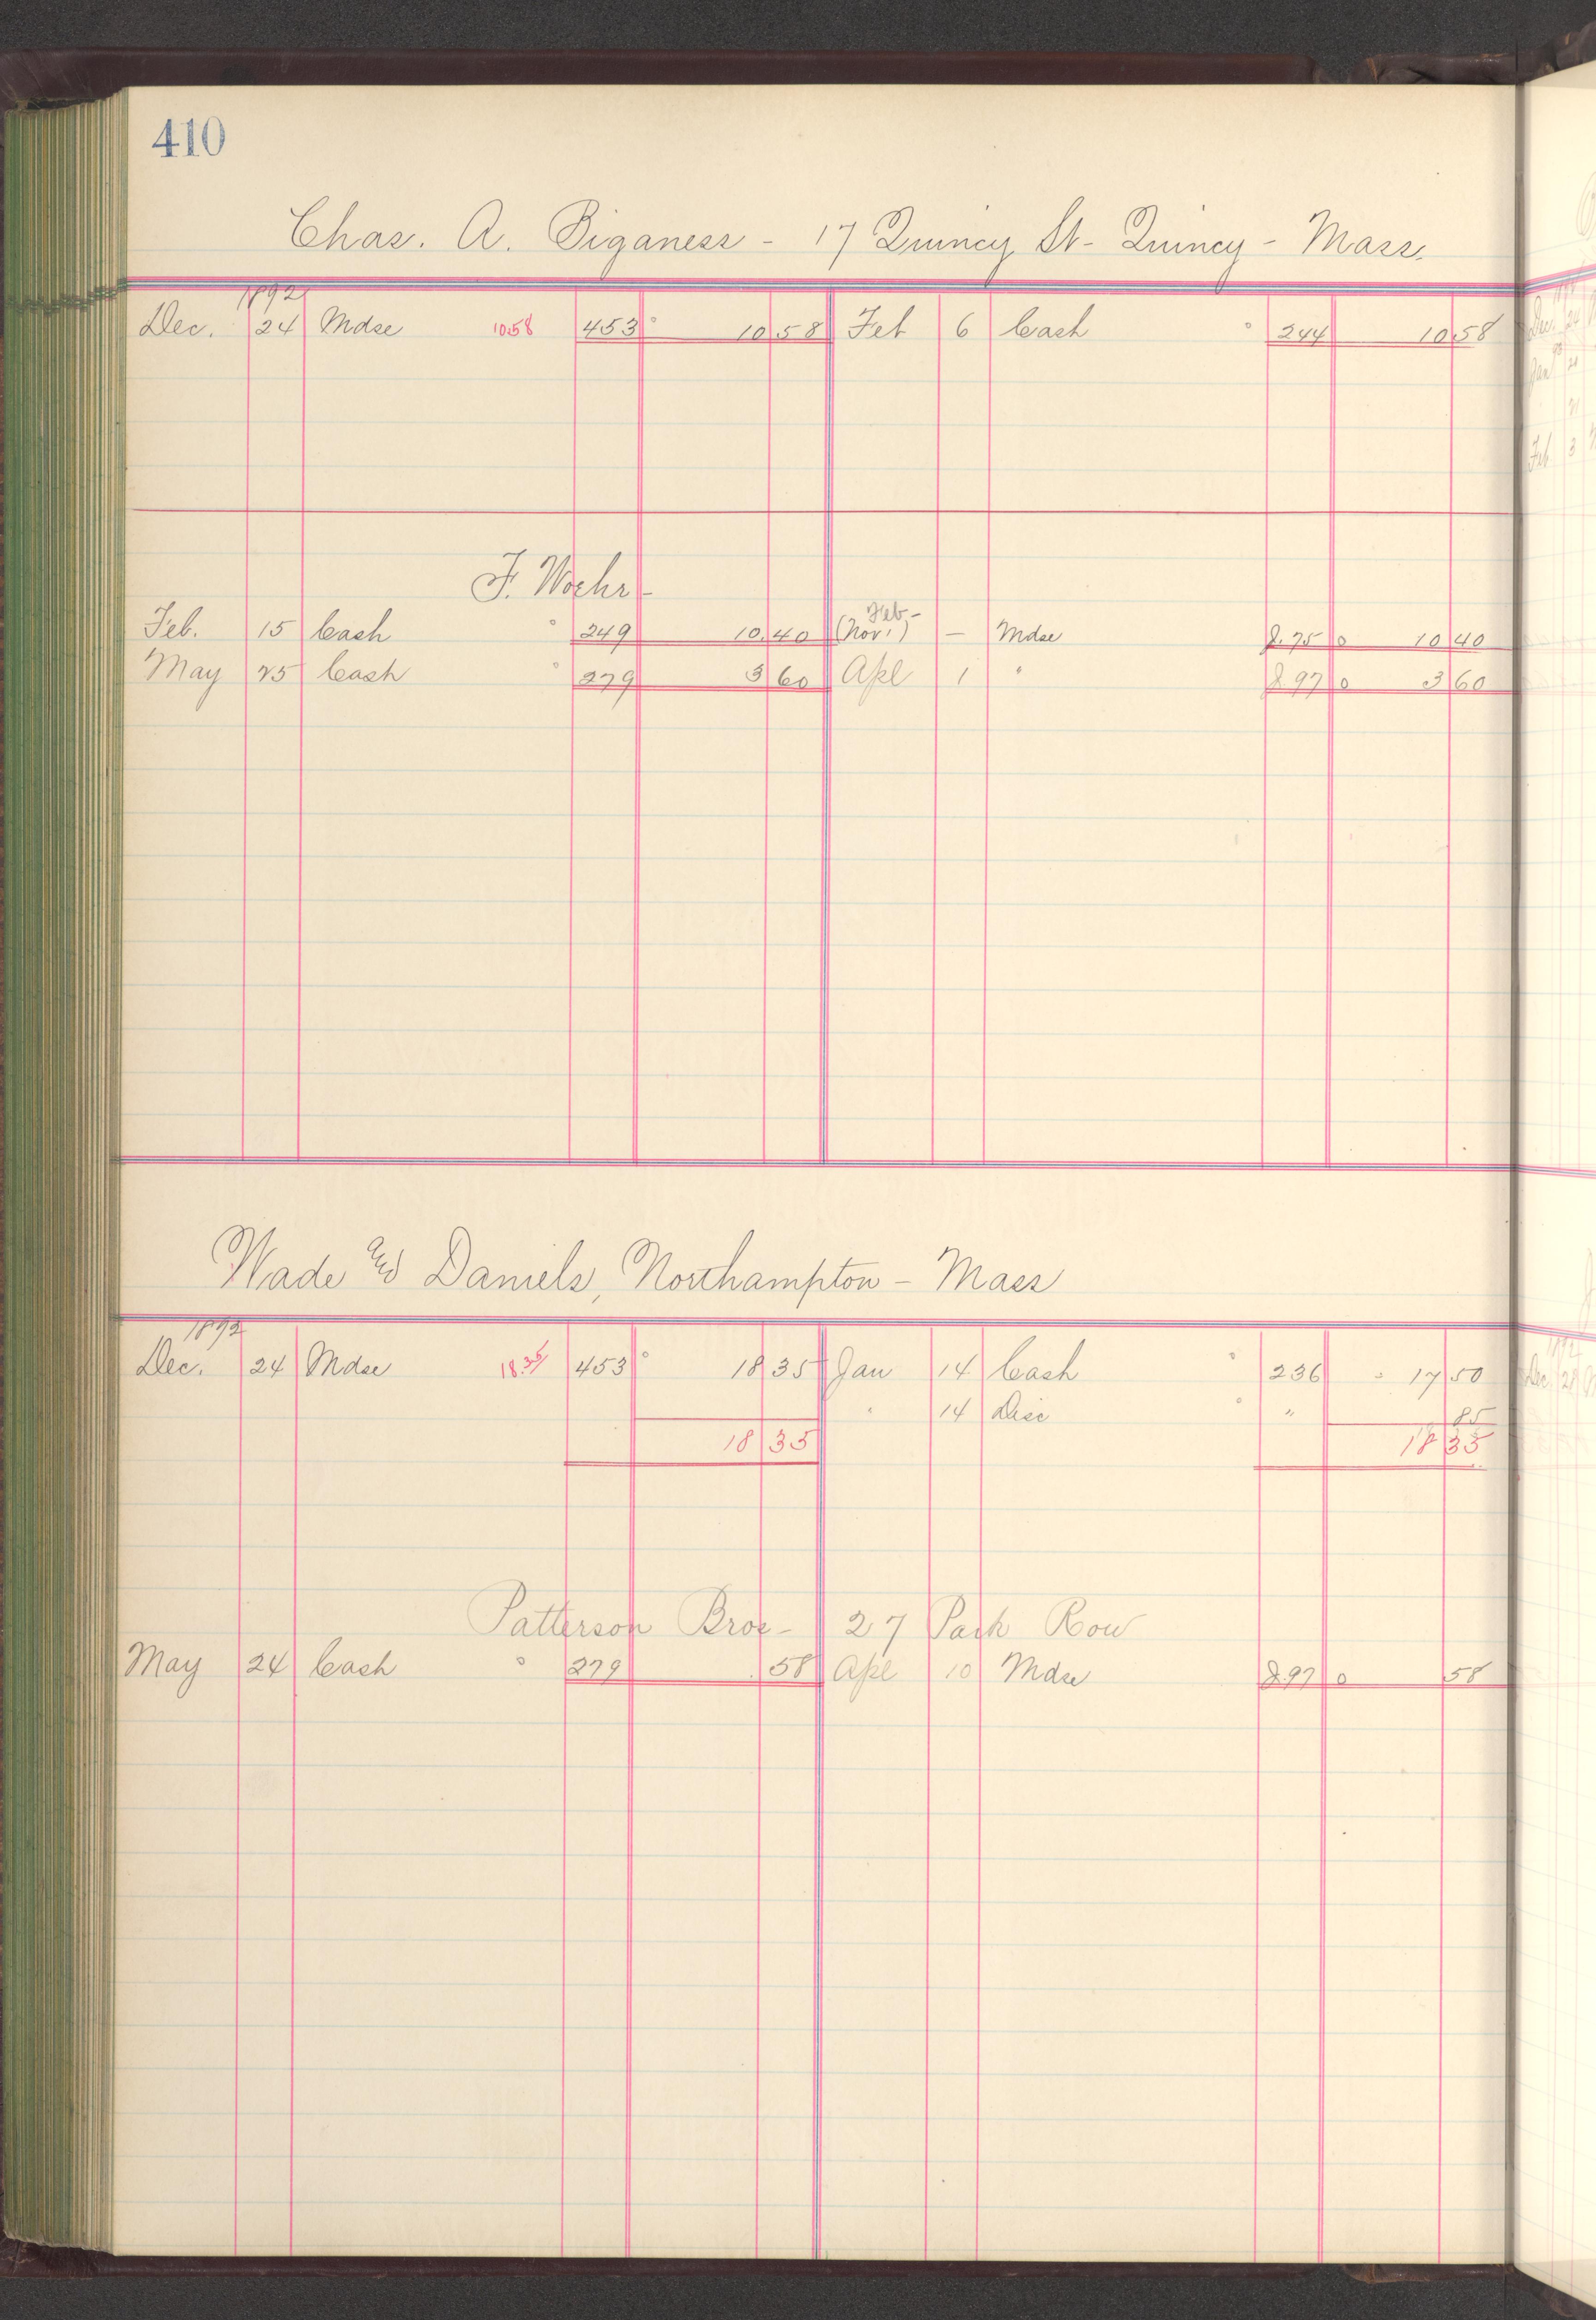 410
Chas. A. Biganess - 17 Quincy St - Quincy - Mass.
1892
Dec. 24 Mdse 10 58 453 10 58 Feb 6 Cash 244 10 58
F. Woehr -
Feb -
Feb. 15 Cash 249 10 40 (Nov.) - Mdse J. 75 0 10 40
May 25 Cash 279 3 60 Apl 1 " J. 97 0 3 60
Wade and Daniels, Northampton - Mass
1892
Dec. 24 Mdse 18.35 453 18 35 Jan 14 Cash 236 17 50
" 14 Disc " 85
18 35 18 35
Patterson Bros - 27 Park Row
May 24 Cash " 279 58 Apl 10 Mdse J. 97 0 58